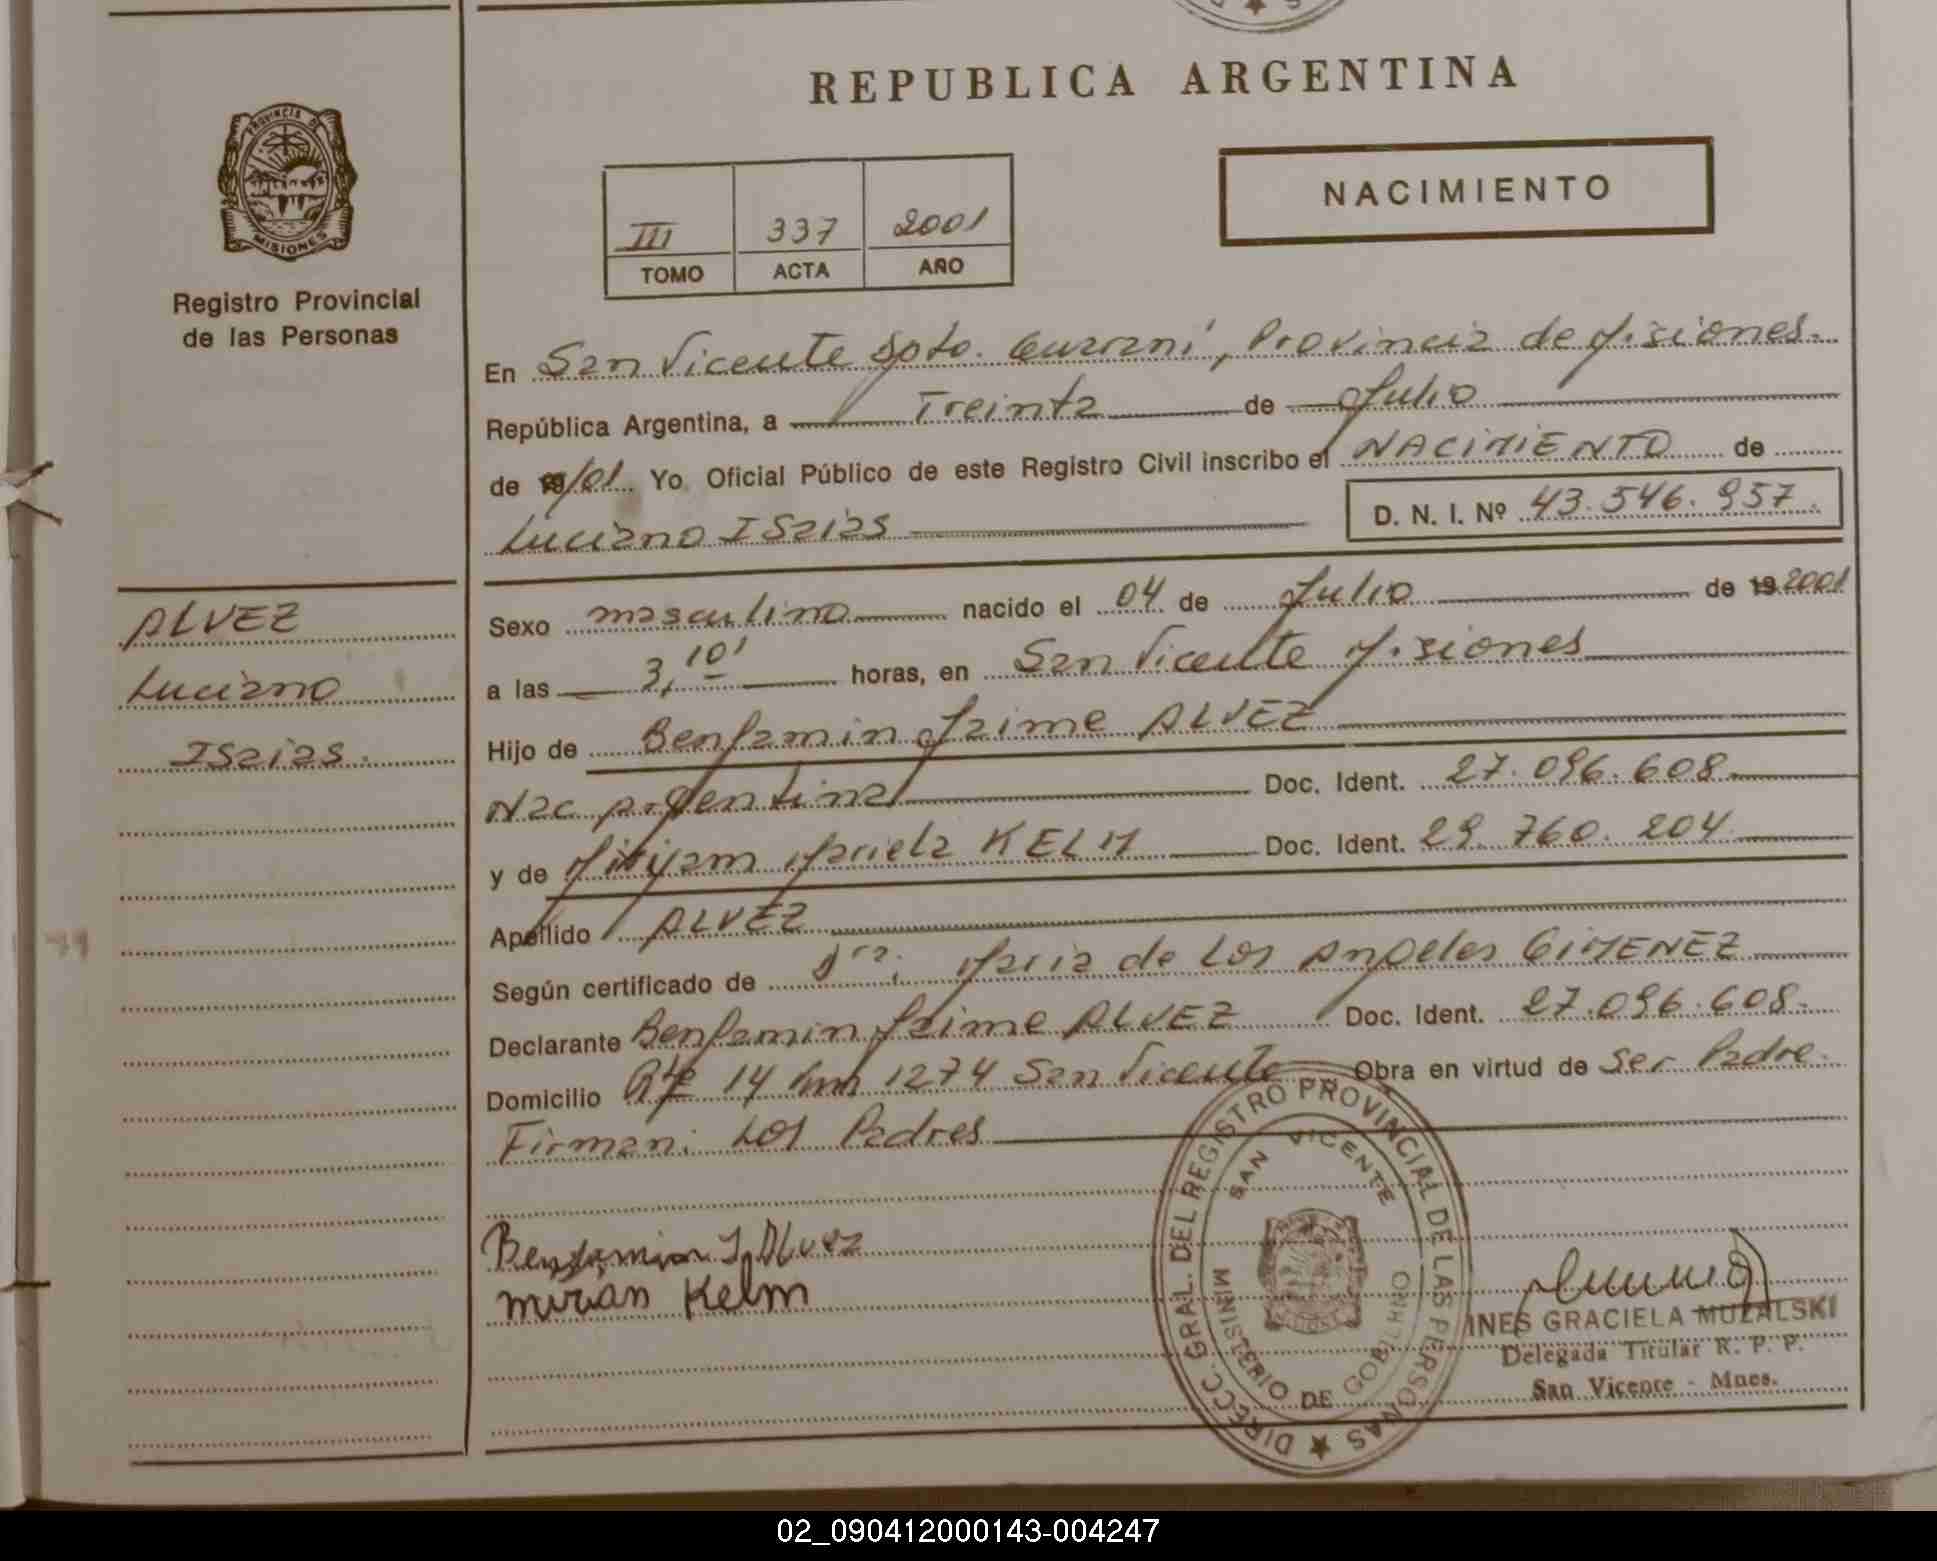 REPUBLICA ARGENTINA
PROVINCIA DE
MISIONES
Registro Provincial
de las Personas
NACIMIENTO
III 337 2001
TOMO ACTA AÑO
En San Vicente Dpto. Guaraní, Provincia de Misiones.
República Argentina, a Treinta de Julio
de 19/01. Yo Oficial Público de este Registro Civil inscribo el NACIMIENTO de
Luciano ISaias D. N. I. Nº 43.546.957.
ALVEZ
Luciano
ISaias.
Sexo masculino nacido el 04 de Julio de 19 2001
a las 3,10' horas, en San Vicente Misiones
Hijo de Benjamin Jaime ALVEZ
Nac argentina Doc. Ident. 27.096.608
y de Miriyam Mariela KELM Doc. Ident. 29.760.204
Apellido ALVEZ
Según certificado de Dra. Maria de Los Angeles GIMENEZ
Declarante Benjamin Jaime ALVEZ Doc. Ident. 27.096.608.
Domicilio Rta 14 km 1274 San Vicente Obra en virtud de Ser Padre.
Firman: Los Padres
Benjamin J. Alvez
Mirian Kelm
DIRECC. GRAL. DEL REGISTRO PROVINCIAL DE LAS PERSONAS
SAN VICENTE
MINISTERIO DE GOBIERNO
INES GRACIELA MUZALSKI
Delegada Titular R. P. P.
San Vicente - Mnes.
02_090412000143-004247